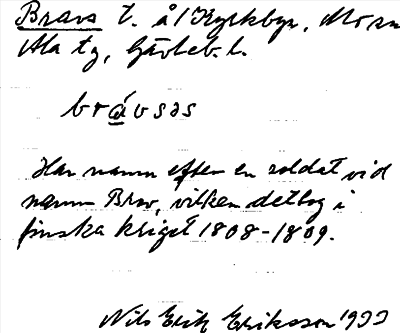 Bravs t. å i Kyrkbyn, Mo sn
Ala tg, Gävleb. l.
bråvsəs
Har namn efter en soldat vid
namn Brav, vilken deltog i
finska kriget 1808-1809.
Nils Erik Eriksson 1933